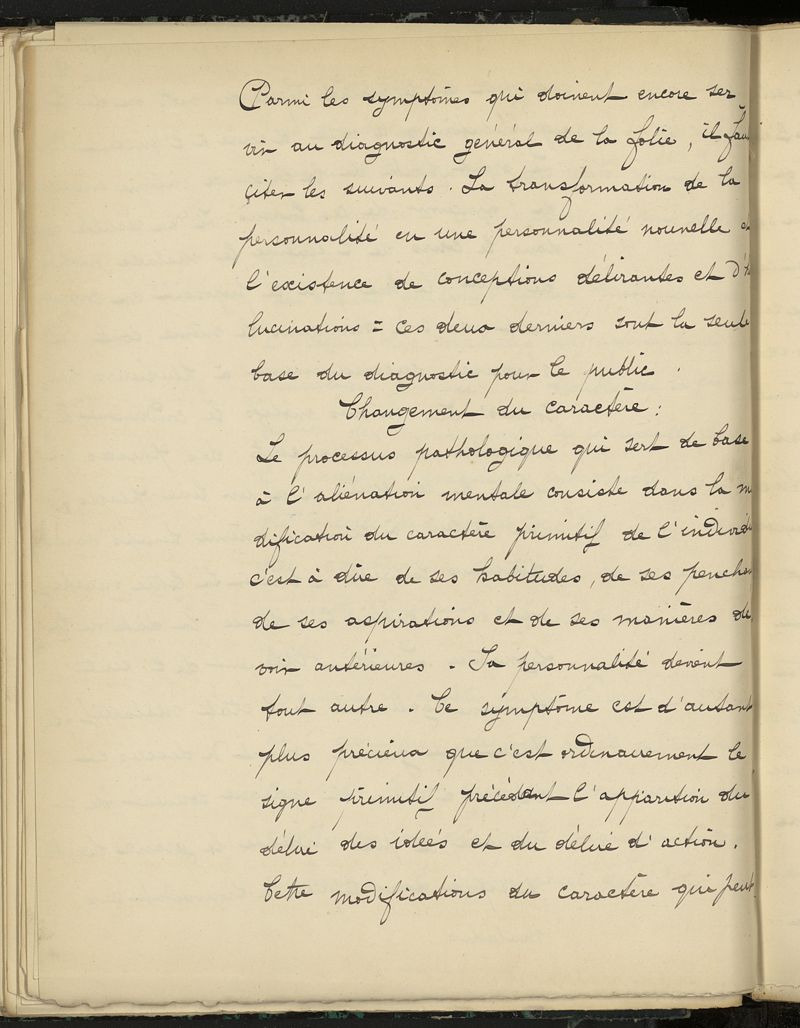 Parmi les symptômes qui doivent encore ser-
vir au diagnostic général de la folie, il fau
citer les suivants. La transformation de la
personnalité en une personnalité nouvelle et
l'existence de conceptions délirantes et d'h
lucinations = ces deux derniers sont la seule
base du diagnostic pour le public.
Changement du caractère:
Le processus pathologique qui sert de base
à l'aliénation mentale consiste dans la m
dification du caractère primitif de l'individu
c'est à dire de ses habitudes, de ses penchan
de ses aspirations et de ses manières de
voir antérieures. Sa personnalité devient
tout autre. Ce symptôme est d'autant
plus précieux que c'est ordinairement le
signe primitif précédant l'apparition du
délire des idées et du délire d'action.
Cette modifications du caractère qui peut